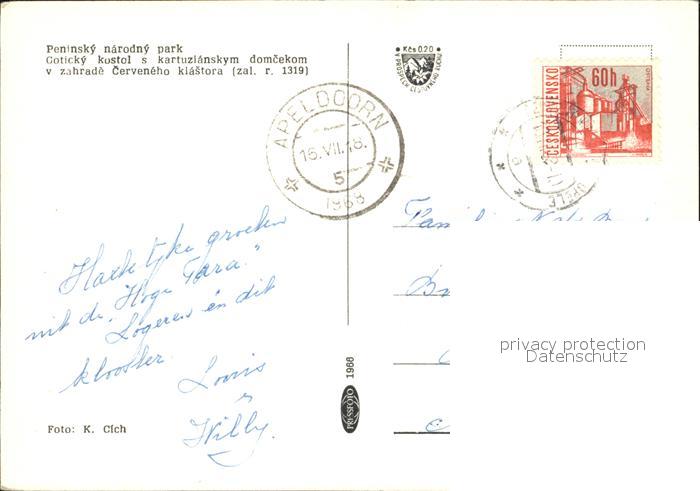 Peninský národný park
Gotický kostol s kartuziánskym domčekom
v zahradě Červeného kláštora (zal. r. 1319)
Kčs 0.20
ČESKOSLOVENSKO
60h
APELDOORN
16.VII.18.
5
1968
Hartelyke groeten
uit de "Hoge Tatra."
Logeren in dit
klooster.
Louis
Willy.
Foto: K. Cích
PRESSFOTO
1966
privacy protection
Datenschutz